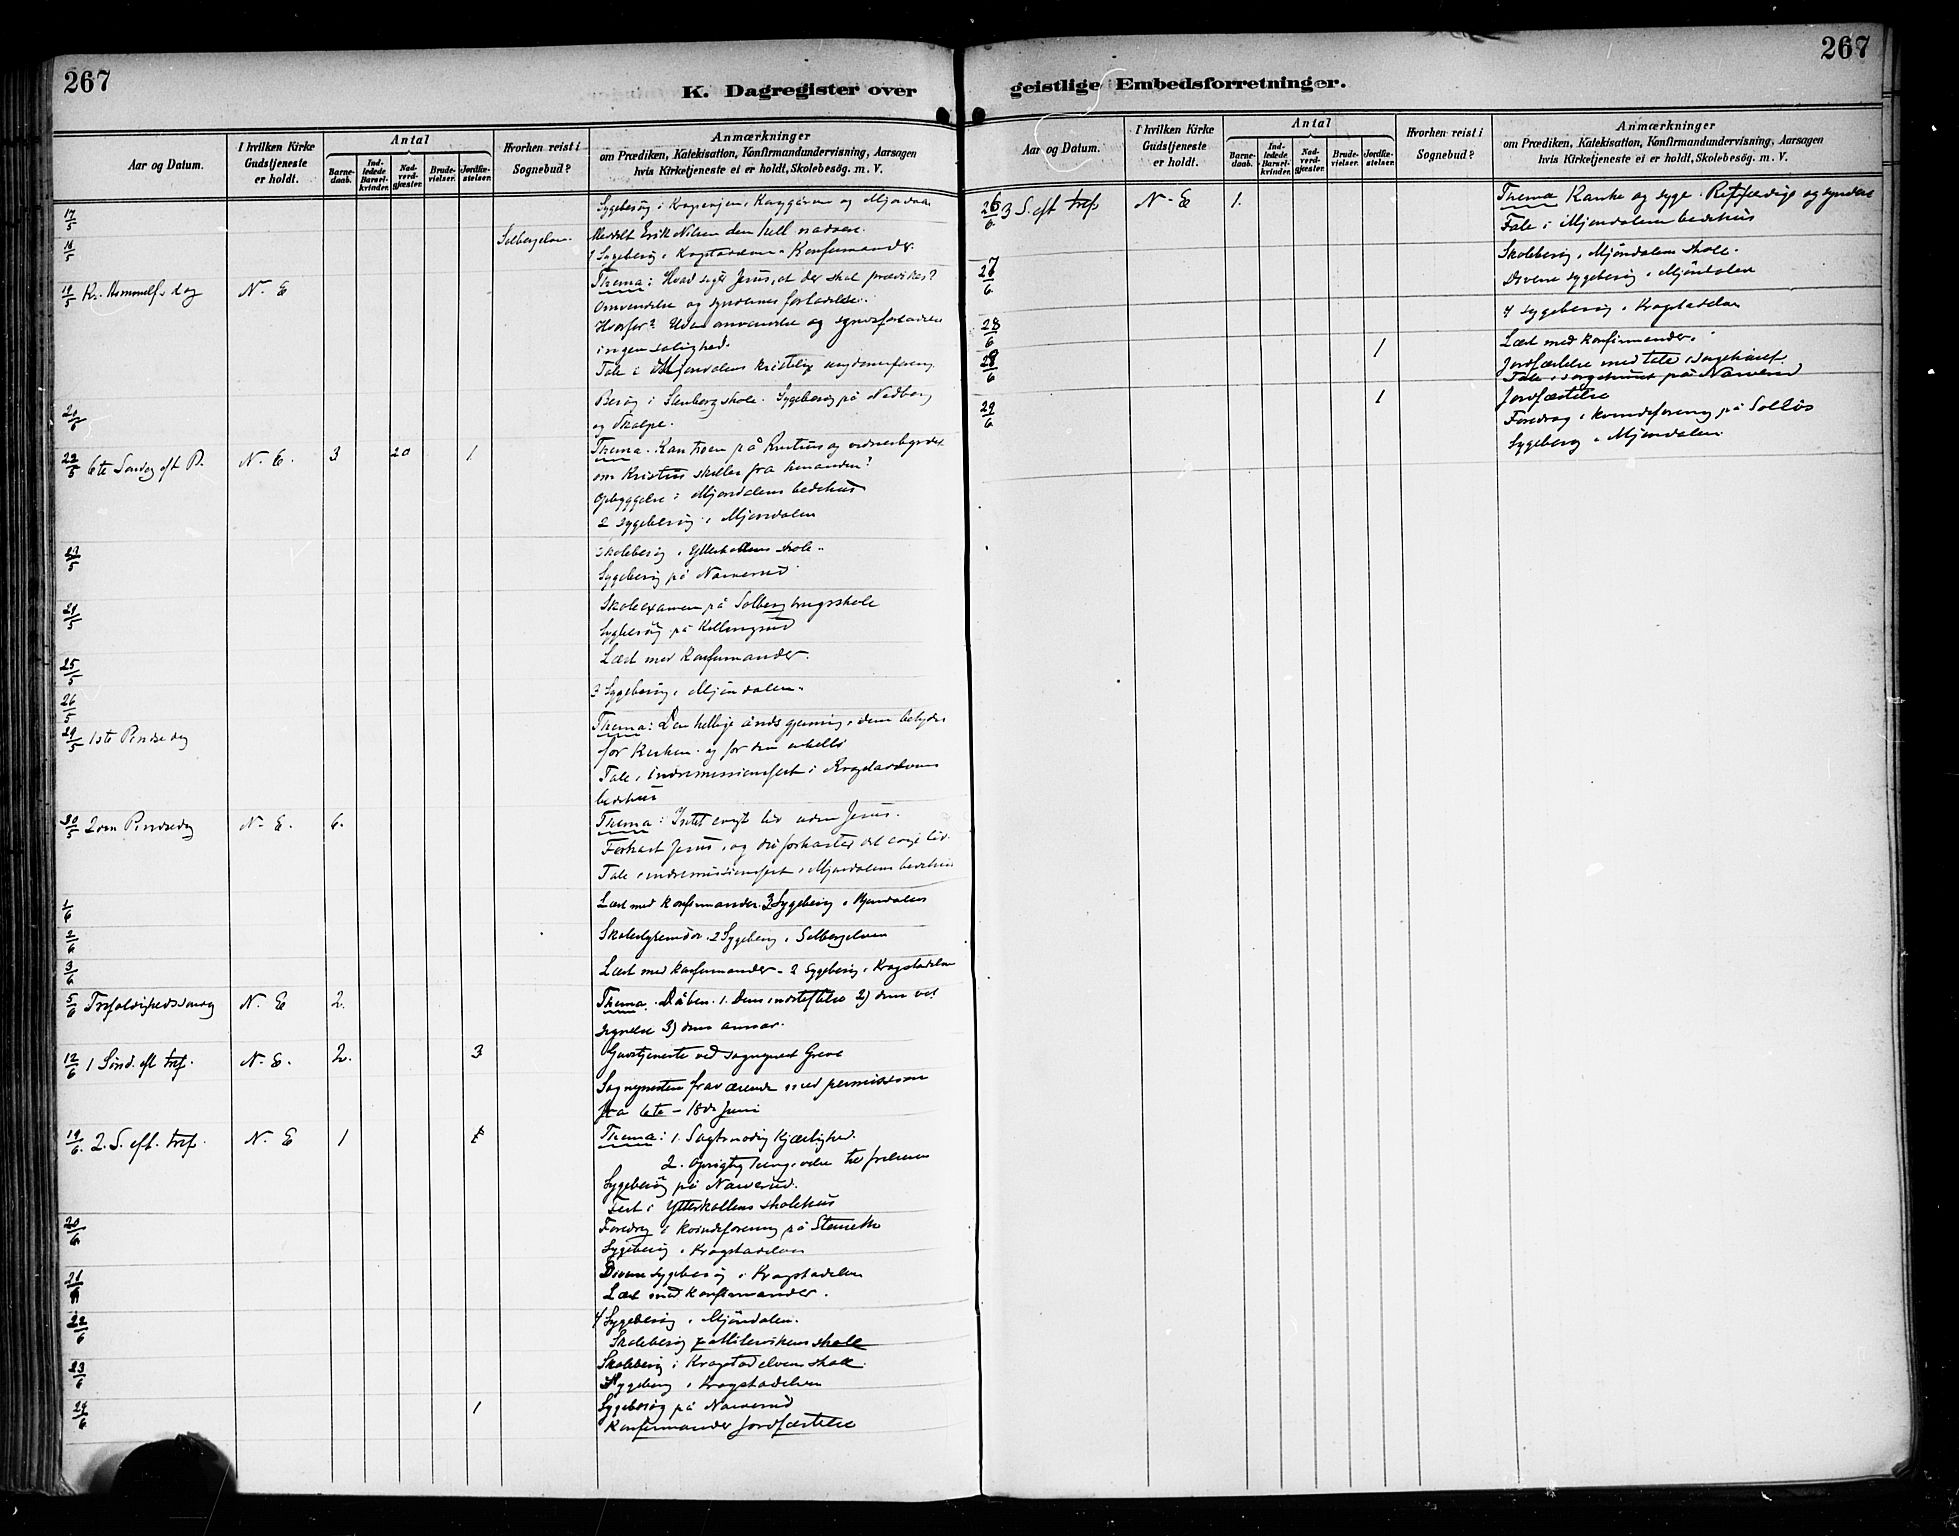 267
K. Dagregister over
Aar og Datum.
I hvilken Kirke Gudstjeneste er holdt.
Antal
Barne-daab.
Ind-ledede Barsel-kvinder.
Nad-verd-gjæster.
Brude-vielser.
Jordfæ-stelser.
Hvorhen reist i Sognebud?
Anmærkninger
om Prædiken, Katekisation, Konfirmandundervisning, Aarsagen
hvis Kirketjeneste ei er holdt, Skolebesøg. m. V.
17/5 Sygebesög i og Mjöndalen
18/5 Solbergelven. Meddelt Erik Nilsen den hell nadvere.
Sygebesög i Konfirmander
19/5 Kr. Himmelf. dag N. E Thema: Hvad siger Jesus, at der skal prædikes?
Omvendelse og syndernes forladelse.
Hvorfor? Uden omvendelse og syndsforladelse
ingen salighed.
Tale i Mjöndalens kristelige ungdomsforening
Besög i skole. Sygebesög på Nedberg
og
22/5 6te Söndag eft P. N. E. 3 20 1 Thema. Kan troen på Kristus og vidnesbyrdet
om Kristus skilles fra hinanden?
Opbyggelse i Mjöndalens bedehus
2 sygebesög i Mjöndalen
23/5 Skolebesög i Ytterkollens skole.
Sygebesög på Narverud
24/5 Skoleexamen på Solberg brugsskole
Sygebesög på Killingrud
25/5 Læst med Konfirmander.
26/5 3 Sygebesög i Mjöndalen.
29/5 1ste Pindsedag Thema: Den hellige ånds gjerning, dens betydn
for Kirken og for den enkelte
Tale i indremissionsfest i Krogstadelvens
bedehus
30/5 2den Pindsedag N. E. 6. Thema: Intet evigt liv uden Jesus.
Forkast Jesus, og du forkaster det evige liv.
Tale i indremissionsfest i Mjöndalens bedehus
1/6 Læst med konfirmander. 3 Sygebesög i Mjöndalen
2/6 2 Sygebesög i Solbergelven
3/6 Læst med konfirmander. 2 Sygebesög i Krogstadelven
5/6 Trefoldighedssöndag N. E 2. Thema. Dåben. 1. Dens indstiftelse 2) dens vel
signelse 3) dens ansvar.
12/6 1 Sönd. eft tref. N. E. 2. 3 Gudstjeneste ved sogneprest Greve
Sognepresten fraværende med permission
fra 6te – 18de Juni
19/6. 2. S. eft. tref. N. E 1 Thema: 1. Sagtmodig Kjærlighed.
2. Oprigtig til frelseren
Sygebesög på Narverud.
Fest i Ytterkollens skolehus
20/6 Foredrag i kvindeforening på Stenseth
Sygebesög i Krogstadelven
21/6 Diverse sygebesög i Krogstadelven
Læst med konfirmander.
22/6 4 Sygebesög i Mjöndalen.
Skolebesög skole
23/6 Skolebesög i Krogstadelvens skole.
Sygebesög i Krogstadelven
24/6 1 Sygebesög på Narverud
Konfirmander Jordfæstelse
267
geistlige Embedsforretninger.
Aar og Datum.
I hvilken Kirke Gudstjeneste er holdt.
Antal
Barne-daab.
Ind-ledede Barsel-kvinder.
Nad-verd-gjæster.
Brude-vielser.
Jordfæ-stelser.
Hvorhen reist i Sognebud?
Anmærkninger
om Prædiken, Katekisation, Konfirmandundervisning, Aarsagen
hvis Kirketjeneste ei er holdt, Skolebesög. m. V.
26/6. 3 S. eft tref. N. E 1. Thema Ranke og syge. Retfærdige og syndere
Tale i Mjöndalens bedehus
27/6 Skolebesög i Mjöndalens skole.
Diverse sygebesög i Mjöndalen
4 sygebesög i Krogstadelven
28/6 Læst med konfirmander.
1 Jordfæstelse med tale i sörgehuset
Tale i sörgehuset på Narverud
29/6 1 Jordfæstelse
Foredrag i kvindeforening på Solløs
Sygebesög i Mjöndalen